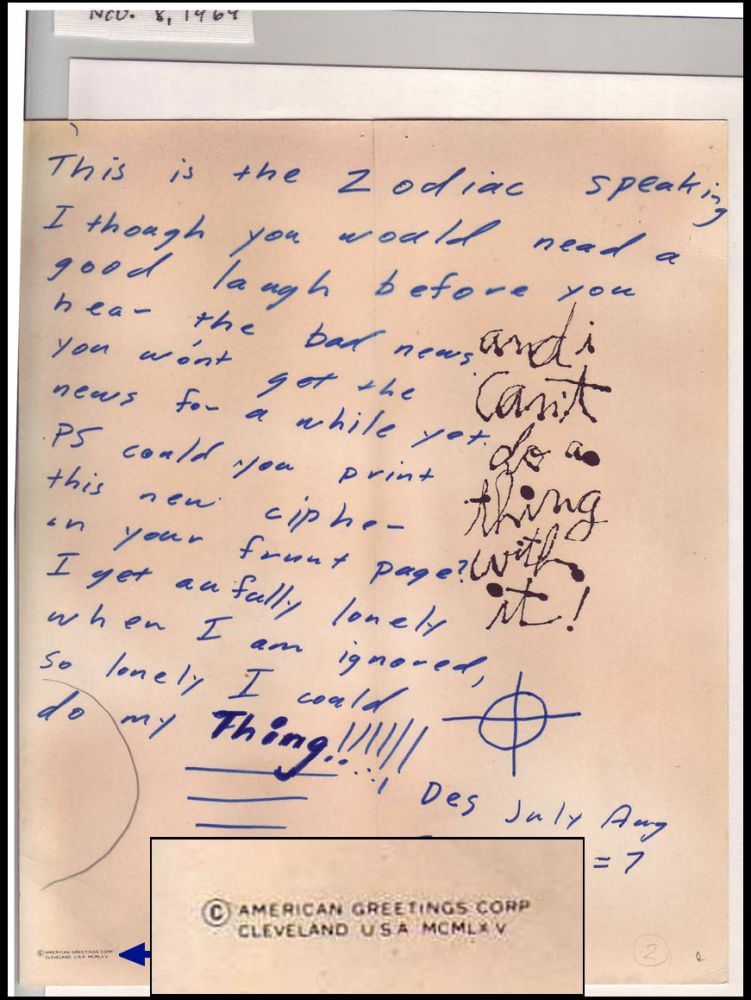 Nov. 8, 1969
This is the Zodiac speaking
I though you would nead a
good laugh before you
hear the bad news.
you won't get the
news for a while yet.
PS could you print
this new cipher
on your frunt page?
I get aufully lonely
when I am ignored,
so lonely I could
do my Thing!!!!!!
and i
can't
do a
thing
with
it!
Des July Aug
= 7
© AMERICAN GREETINGS CORP
CLEVELAND USA MCMLXV
© AMERICAN GREETINGS CORP
CLEVELAND USA MCMLXV
2